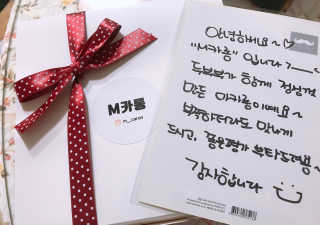 M카롱
안녕하세요~
"M카롱" 입니다 ?~
두부부가 함께 정성껏
만든 마카롱이예요~
부족하더라도 맛나게
드시고, 좋은평가 부탁드려용~
감사합니다